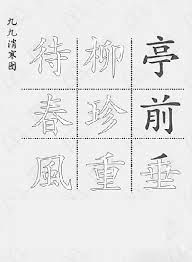 九九消寒图
亭前垂
柳珍重
待春風